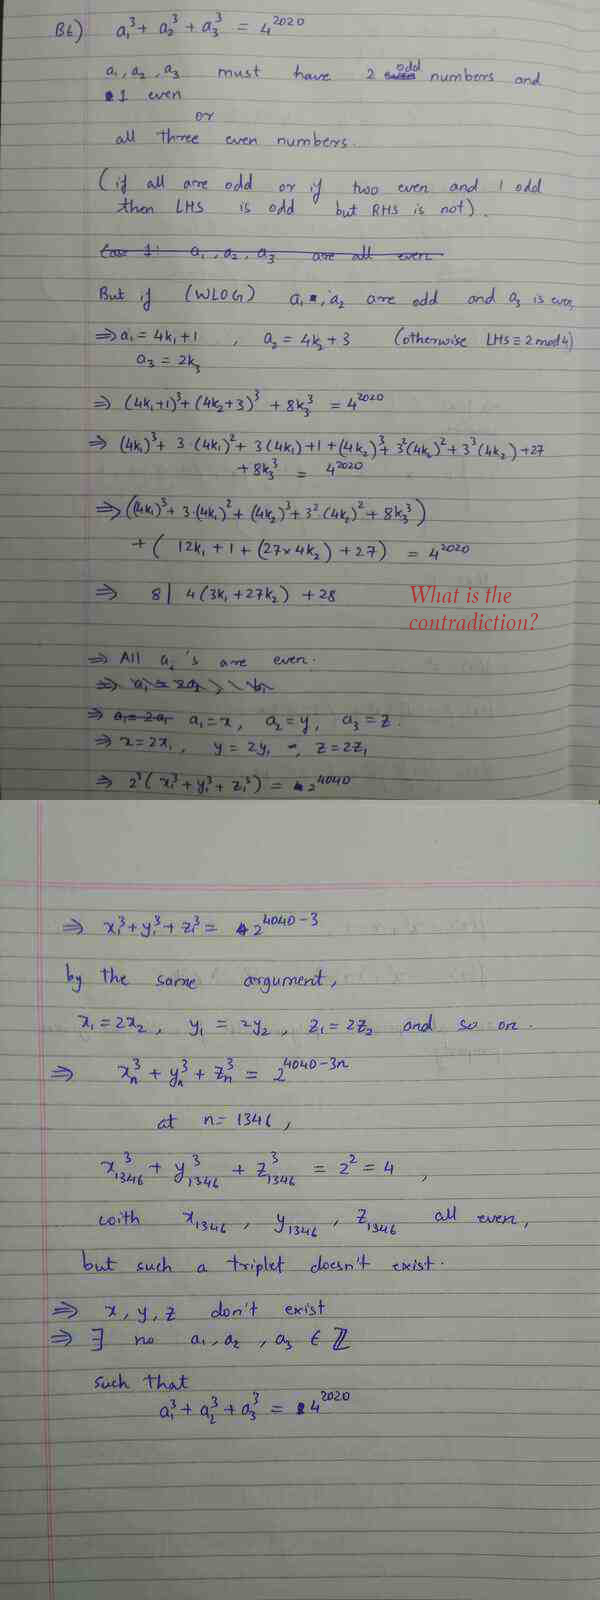 B6) a₁³ + a₂³ + a₃³ = 4²⁰²⁰
a₁, a₂, a₃ must have 2 odd numbers and
1 even
or
all three even numbers.
(if all are odd or if two even and 1 odd
then LHS is odd but RHS is not).
Case 1: a₁, a₂, a₃ are all even
But if (WLOG) a₁, a₂ are odd and a₃ is even,
⇒ a₁ = 4k₁+1 , a₂ = 4k₂+3 (otherwise LHS ≡ 2 mod 4)
a₃ = 2k₃
⇒ (4k₁+1)³ + (4k₂+3)³ + 8k₃³ = 4²⁰²⁰
⇒ (4k₁)³ + 3·(4k₁)² + 3(4k₁) + 1 + (4k₂)³ + 3²(4k₂)² + 3³(4k₂) + 27
+ 8k₃³ = 4²⁰²⁰
⇒ ((4k₁)³ + 3·(4k₁)² + (4k₂)³ + 3²·(4k₂)² + 8k₃³)
+ ( 12k₁ + 1 + (27×4k₂) + 27) = 4²⁰²⁰
⇒ 8 | 4(3k₁ + 27k₂) + 28
What is the
contradiction?
⇒ All aᵢ's are even.
⇒ a₁ = 2a₁ a₁ = x, a₂ = y, a₃ = z.
⇒ x = 2x₁, y = 2y₁, z = 2z₁
⇒ 2³(x₁³ + y₁³ + z₁³) = 2⁴⁰⁴⁰
⇒ x₁³ + y₁³ + z₁³ = 2⁴⁰⁴⁰⁻³
by the same argument,
x₁ = 2x₂, y₁ = 2y₂, z₁ = 2z₂ and so on.
⇒ xₙ³ + yₙ³ + zₙ³ = 2⁴⁰⁴⁰⁻³ⁿ
at n = 1346,
x₁₃₄₆³ + y₁₃₄₆³ + z₁₃₄₆³ = 2² = 4 ,
with x₁₃₄₆, y₁₃₄₆, z₁₃₄₆ all even,
but such a triplet doesn't exist.
⇒ x, y, z don't exist
⇒ ∃ no a₁, a₂, a₃ ∈ ℤ
such that
a₁³ + a₂³ + a₃³ = 4²⁰²⁰